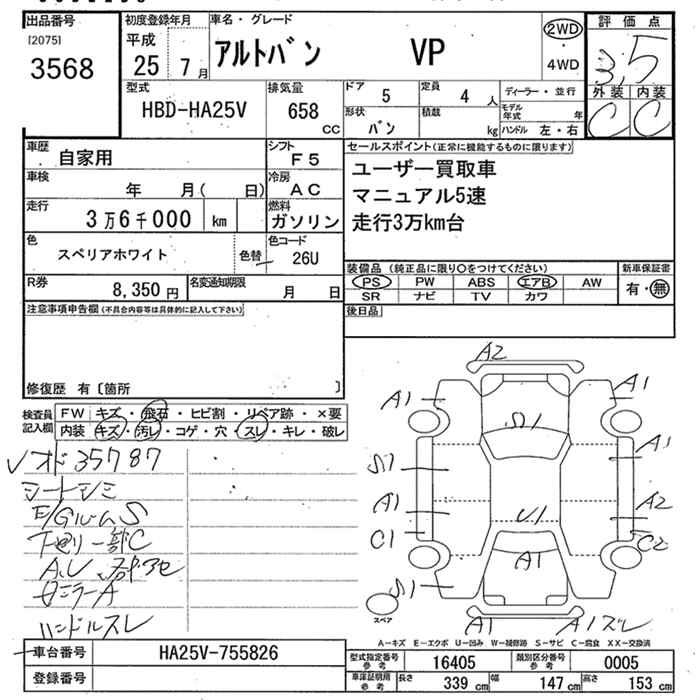 出品番号
[2075]
3568
初度登録年月
平成
25 7月
車名・グレード
アルトバン VP
2WD
・
4WD
評価点
3.5
外装 内装
C C
型式
HBD-HA25V
排気量
658
CC
ドア 5
定員 4 人
形状 バン
積載 kg
ディーラー・並行
モデル年式 年
ハンドル 左・右
車歴
自家用
シフト
F5
車検
年 月( 日)
冷房
AC
走行
3万6千000 km
燃料
ガソリン
色
スペリアホワイト
色替
色コード
26U
R券
8,350円
名変通知期限
月 日
セールスポイント(正常に機能するものに限ります)
ユーザー買取車
マニュアル5速
走行3万km台
装備品(純正品に限り○をつけてください)
新車保証書
PS PW ABS エアB AW
SR ナビ TV カワ
有・無
後日品
注意事項申告欄(不具合内容等は具体的に記入して下さい)
修復歴 有〔箇所 〕
検査員
記入欄
FW キズ・飛石・ヒビ割・リペア跡・×要
内装 キズ・汚レ・コゲ・穴・スレ・キレ・破レ
オド35787
シートシミ
E/GルームS
下廻り一部C
ミラーA
ハンドルスレ
A2
A1 A1
A1
S1
A1 A2
U1
C1 C2
A1
S1
スペア
A1 A1スレ
A-キズ E-エクボ U-凹み W-補修跡 S-サビ C-腐食 XX-交換済
車台番号 HA25V-755826
登録番号
型式指定番号
参考
16405
類別区分番号
参考
0005
車庫証明用
参考
長さ 339 cm 幅 147 cm 高さ 153 cm